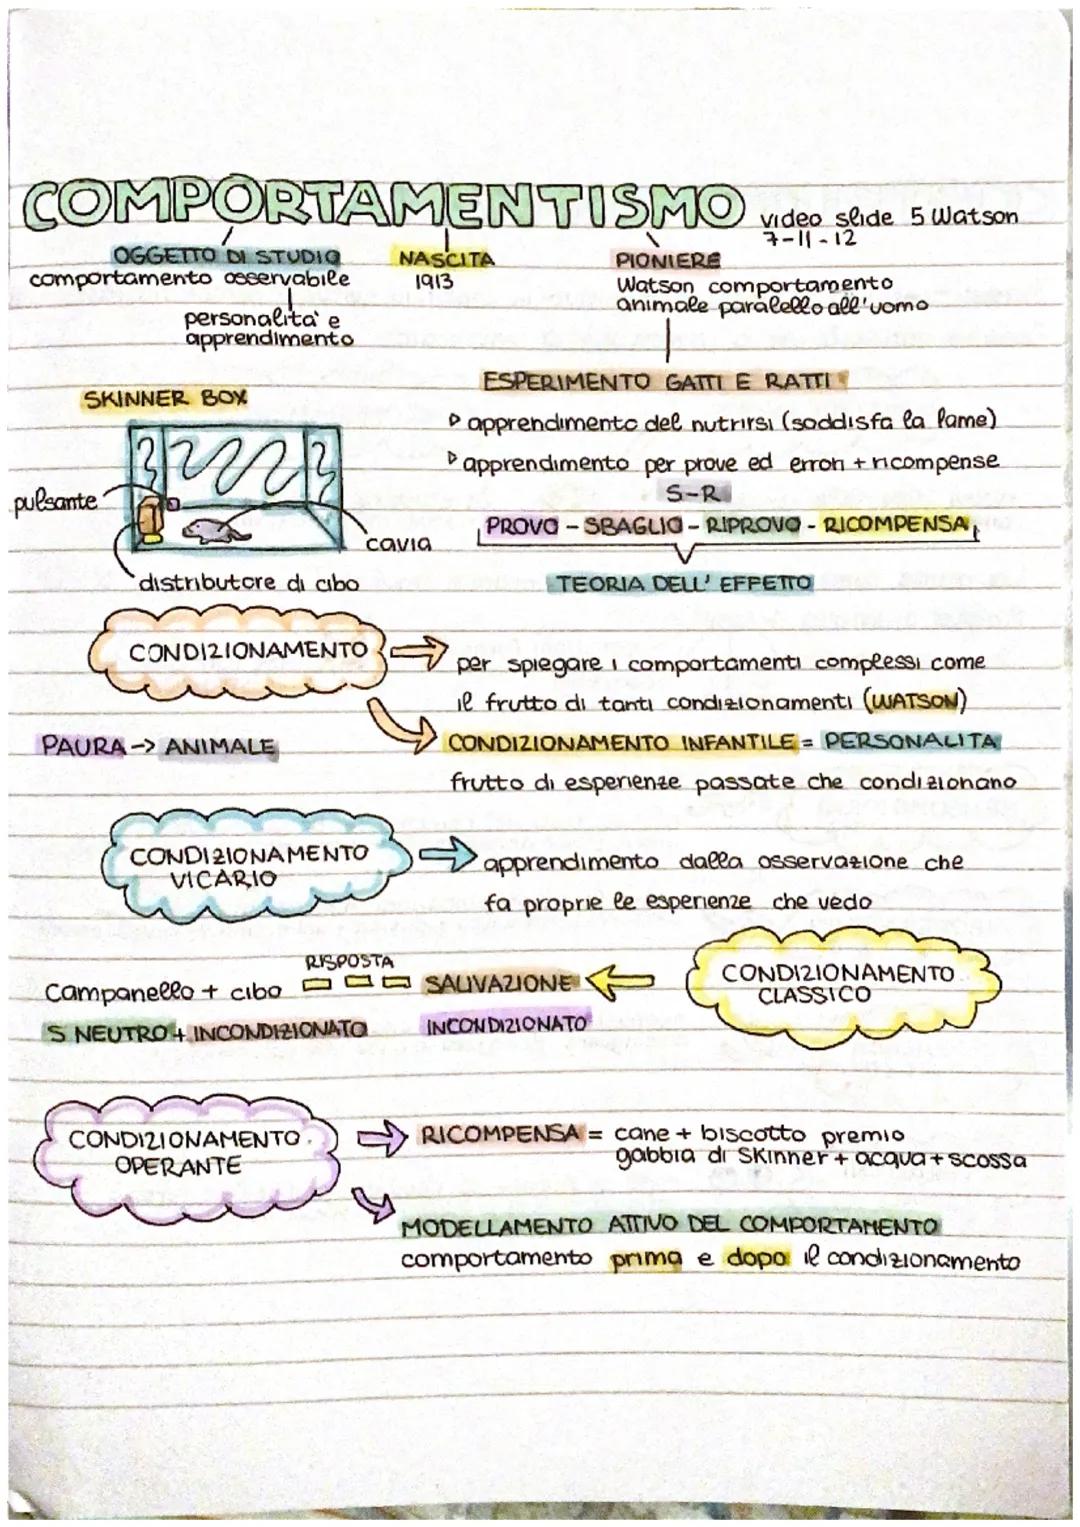 COMPORTAMENTISMO
video slide 5 Watson
7-11-12
OGGETTO DI STUDIO
comportamento osservabile
personalità e
apprendimento
NASCITA
1913
PIONIERE
Watson comportamento
animale parallelo all'uomo
ESPERIMENTO GATTI E RATTI
apprendimento del nutrirsi (soddisfa la fame)
apprendimento per prove ed errori + ricompense
S-R
PROVO - SBAGLIO - RIPROVO - RICOMPENSA
TEORIA DELL' EFFETTO
SKINNER BOX
pulsante
cavia
distributore di cibo
CONDIZIONAMENTO
per spiegare i comportamenti complessi come
il frutto di tanti condizionamenti (WATSON)
PAURA -> ANIMALE
CONDIZIONAMENTO INFANTILE = PERSONALITA
frutto di esperienze passate che condizionano
CONDIZIONAMENTO
VICARIO
apprendimento dalla osservazione che
fa proprie le esperienze che vedo
CONDIZIONAMENTO
CLASSICO
RISPOSTA
Campanello + cibo
SALIVAZIONE
S NEUTRO + INCONDIZIONATO
INCONDIZIONATO
CONDIZIONAMENTO
OPERANTE
RICOMPENSA = cane + biscotto premio
gabbia di Skinner + acqua + scossa
MODELLAMENTO ATTIVO DEL COMPORTAMENTO
comportamento prima e dopo il condizionamento